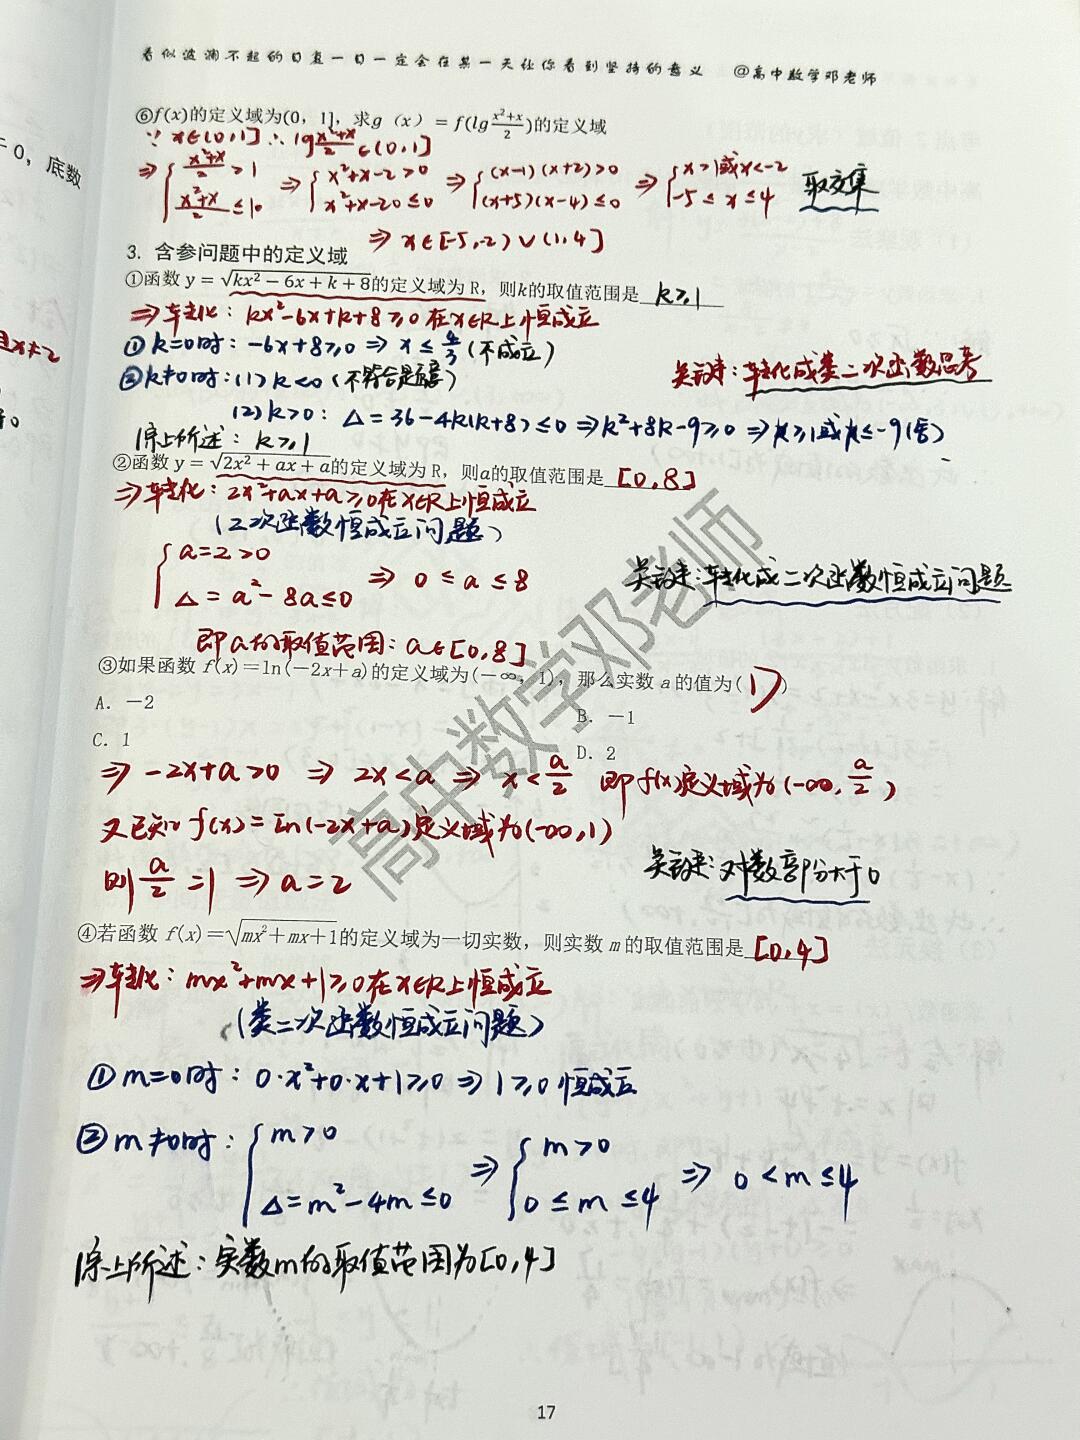 看似波澜不起的日复一日一定会在某一天让你看到坚持的意义 @高中数学邓老师
=0，底数
⑥f(x)的定义域为(0，1]，求g（x）=f(lg (x²+x)/2)的定义域
∵ x∈(0,1] ∴ lg (x²+x)/2 ∈(0,1]
⇒ { (x²+x)/2 > 1 ⇒ { x²+x-2>0 ⇒ { (x-1)(x+2)>0 ⇒ { x>1或x<-2 取交集
(x²+x)/2 ≤ 10 x²+x-20≤0 (x+5)(x-4)≤0 -5≤x≤4
⇒ x∈[-5,-2)∪(1,4]
3. 含参问题中的定义域
①函数 y=√(kx²-6x+k+8)的定义域为 R，则k的取值范围是 k≥1
⇒转化：kx²-6x+k+8≥0在x∈R上恒成立
x≠2
①k=0时：-6x+8≥0 ⇒ x≤4/3 (不成立)
②k≠0时：(1) k<0 (不符合题意)
关键：转化成类二次函数思考
(2) k>0：Δ=36-4k(k+8)≤0 ⇒k²+8k-9≥0 ⇒k≥1或k≤-9(舍)
综上所述：k≥1
②函数 y=√(2x²+ax+a)的定义域为 R，则a的取值范围是 [0,8]
⇒转化：2x²+ax+a≥0在x∈R上恒成立
(二次函数恒成立问题)
{ a=2>0
Δ=a²-8a≤0 ⇒ 0≤a≤8
关键：转化成二次函数恒成立问题
即a的取值范围：a∈[0,8]
③如果函数 f(x)=ln(-2x+a)的定义域为(-∞，1)，那么实数 a 的值为( D )
A. -2 B. -1
C. 1 D. 2
⇒ -2x+a>0 ⇒ 2x<a ⇒ x<a/2 即f(x)定义域为(-∞, a/2)
又已知 f(x)=ln(-2x+a)定义域为(-∞,1)
则 a/2=1 ⇒ a=2
关键：对数部分大于0
④若函数 f(x)=√(mx²+mx+1)的定义域为一切实数，则实数 m 的取值范围是 [0,4]
⇒转化：mx²+mx+1≥0在x∈R上恒成立
(类二次函数恒成立问题)
①m=0时：0·x²+0·x+1≥0 ⇒ 1≥0 恒成立
②m≠0时：{ m>0 ⇒ { m>0 ⇒ 0<m≤4
Δ=m²-4m≤0 0≤m≤4
综上所述：实数m的取值范围为[0,4]
高中数学邓老师
17